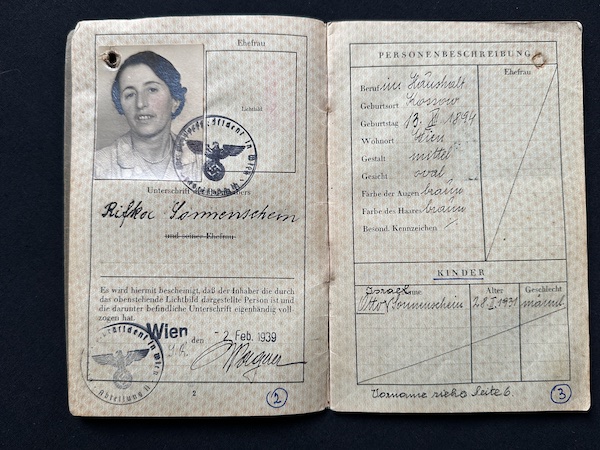 Ehefrau
Lichtbild
Polizeipräsident in Wien
Unterschrift des Inhabers
Rifka Sonnenschein
und seiner Ehefrau
Es wird hiermit bescheinigt, daß der Inhaber die durch
das obenstehende Lichtbild dargestellte Person ist und
die darunter befindliche Unterschrift eigenhändig voll-
zogen hat.
Wien
den
- 2. Feb. 1939
präsident in Wien
Abteilung II
2
2
PERSONENBESCHREIBUNG
Ehefrau
Beruf im Haushalt
Geburtsort Kossow
Geburtstag 13. 1894
Wohnort Wien
Gestalt mittel
Gesicht oval
Farbe der Augen braun
Farbe des Haares braun
Besond. Kennzeichen
KINDER
Israel
Name Alter Geschlecht
Otto Sonnenschein 28. 1931 männl
Vorname siehe Seite 6.
3